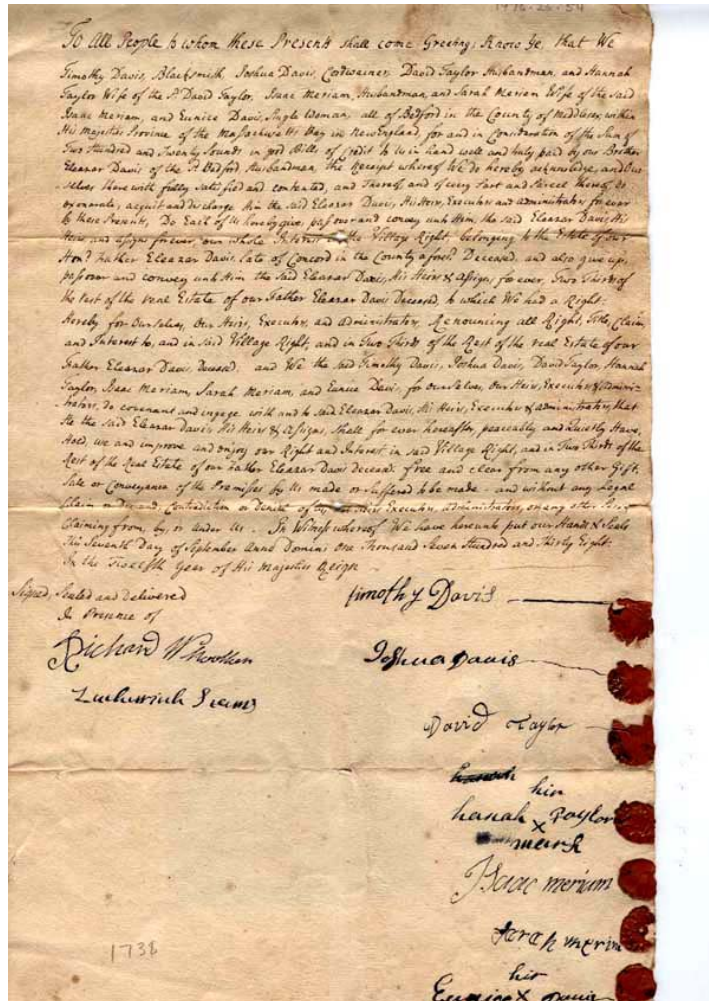 1976-26-54
To All People to whom these Presents shall come Greeting; Know Ye, that We
Timothy Davis, Blacksmith, Joshua Davis, Cordwainer, David Taylor Husbandman, and Hannah
Taylor Wife of the sd. David Taylor, Isaac Meriam, Husbandman, and Sarah Meriam Wife of the said
Isaac Meriam, and Eunice Davis, Single Woman, all of Bedford in the County of Middlesex, within
His Majesties Province of the Massachusetts Bay in New England, for and in Consideration of the Sum of
Two Hundred and Twenty Pounds in good Bills of Credit to us in hand well and truly paid by our Brother
Eleazar Davis of the sd. Bedford Husbandman, the Receipt whereof We do hereby acknowledge, and Our
selves therewith fully satisfied and contented, and Thereof, and of every Part and Parcel thereof, do
exonerate, acquit and discharge Him the said Eleazar Davis, His Heirs, Executors and administrators for ever
by these Presents, Do Each of Us hereby give, pass over and convey unto Him, the said Eleazar Davis His
Heirs and assigns forever, our whole Interest in the Village Right, belonging to the Estate of our
Hond. Father Eleazar Davis, late of Concord in the County aforesd. Deceased, and also give up,
pass over and convey unto Him the said Eleazar Davis, His Heirs & assigns for ever, Two Thirds of
the rest of the real Estate of our Father Eleazar Davis Deceased, to which We had a Right:
Hereby for Ourselves, Our Heirs, Executors, and administrators, Renouncing all Right, Title, Claim,
and Interest to, and in said Village Right, and in Two Thirds of the Rest of the real Estate of our
Father Eleazar Davis, Deceased; and We the said Timothy Davis, Joshua Davis, David Taylor, Hannah
Taylor, Isaac Meriam, Sarah Meriam, and Eunice Davis, for ourselves, Our Heirs, Executors & adminis-
trators, do covenant and engage with and to said Eleazar Davis, His Heirs, Executors & administrators, that
He the said Eleazar Davis His Heirs & Assigns, shall for ever hereafter, peaceably and Quietly Have,
Hold, use and improve and enjoy our Right and Interest in said Village Right, and in Two Thirds of the
Rest of the Real Estate of our Father Eleazar Davis deceased free and clear from any other Gift,
Sale or Conveyance of the Premisses by Us made or suffered to be made - and without any Legal
Claim or Demand, Contradiction or Denial of Us, our Heirs Executors, administrators, or any other Person
Claiming from, by, or under Us. In Witness whereof We have hereunto put our Hands & Seals
This Seventh Day of September Anno Domini One Thousand Seven Hundred and Thirty Eight:
In the Twelfth Year of His Majesties Reign
Signed, Sealed and Delivered
In Presence of
Timothy Davis
Richard
Joshua Davis
David Taylor
hir
hanah x Taylor
mark
Isaac merium
Sarah
1738
hir
Eunice x Davis